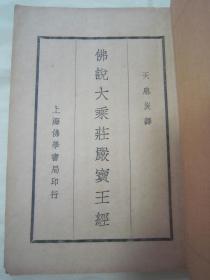 天息災譯
佛說大乘莊嚴寶王經
上海佛學書局印行